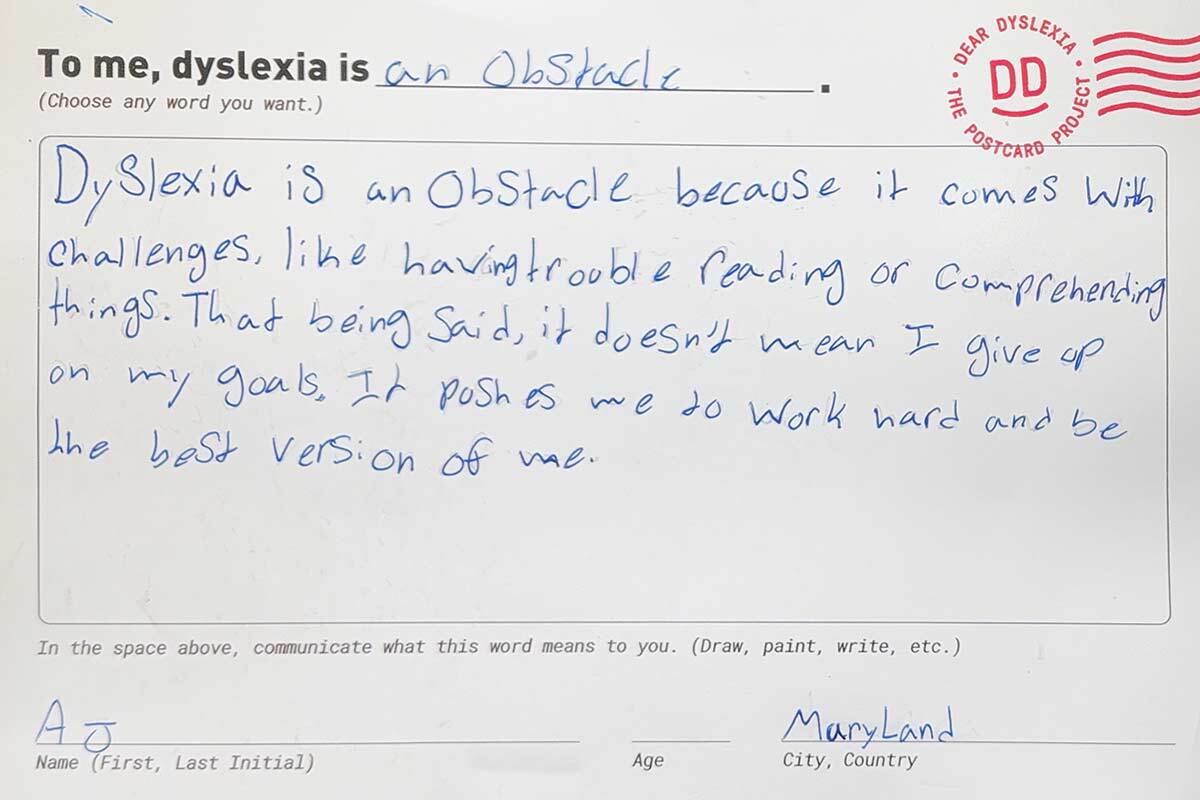 To me, dyslexia is an Obstacle.
(Choose any word you want.)
• DEAR DYSLEXIA • THE POSTCARD PROJECT
DD
Dyslexia is an Obstacle because it comes with
challenges, like having trouble reading or comprehending
things. That being said, it doesn't mean I give up
on my goals. It pushes me to work hard and be
the best version of me.
In the space above, communicate what this word means to you. (Draw, paint, write, etc.)
A J
MaryLand
Name (First, Last Initial)
Age
City, Country